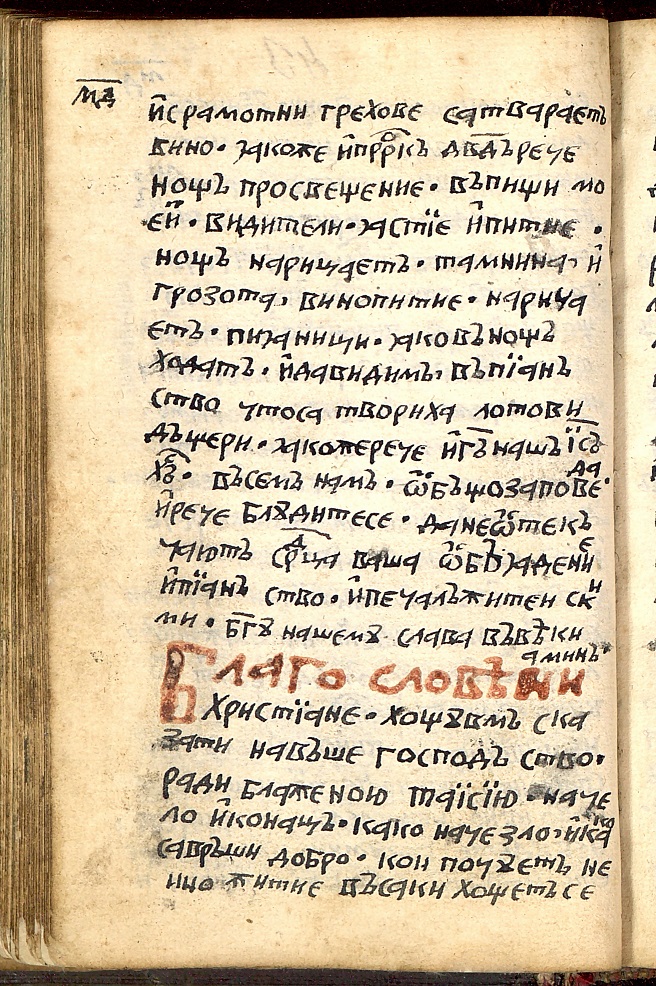 м҃д
и҆срамотни грехове сатвараетъ
вино· ꙗкоже и҆пррⷪ҇къ дв҃дъ рече
нощъ просвещение· въпищи мо
еи҆· видители· ꙗстїе и҆питие ·
нощъ нарицаетъ· тамнина, и҆
грозота, винопитие· нарица
етъ· пиꙗници· ꙗко въ нощъ
ходатъ· и҆да видимъ, въпїан
ство что са твориха лотови
дъщери· ꙗкоже рече и҆г҃ъ нашъ і҃съ
хⷭ҇ъ· въсемъ намъ· ѡ҆бъщо заповеда·
и҆рече блꙋдитесе· да не ѿтекъ
чаютъ срⷣца ваша ѡ҆бъꙗдение
и҆пїанъ ство· и҆печалъ житенски
ми· бг҃ꙋ нашемꙋ слава въвѣки
аминъ
Благо словѣни
Христїане· хощꙋ вмъ ска
зати навъше господъ ство·
ради блаженою таїсїю · наче
ло и҆конацъ· како наче зло, и҆како
савръши добро· кои почꙋетъ не
ино житие въсаки хощетъ се